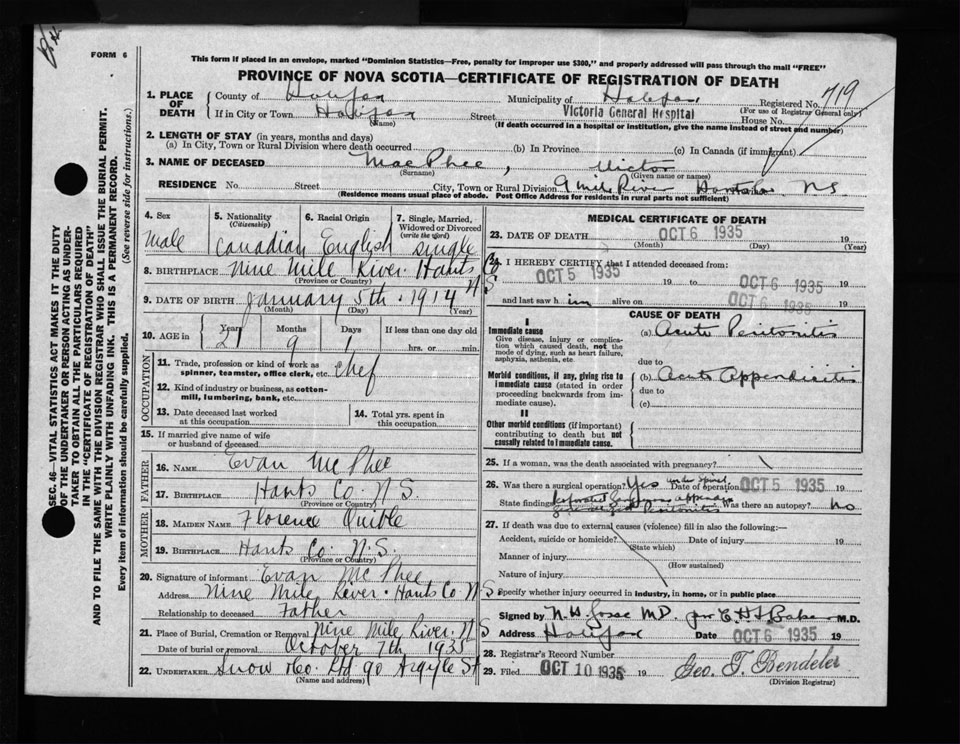 FORM 6
This form if placed in an envelope, marked "Dominion Statistics—Free, penalty for improper use $300," and properly addressed will pass through the mail "FREE"
PROVINCE OF NOVA SCOTIA—CERTIFICATE OF REGISTRATION OF DEATH
1. PLACE OF DEATH
County of Halifax Municipality of Halifax Registered No. 719
(For use of Registrar General only)
If in City or Town Halifax Street Victoria General Hospital House No.
(Name) (If death occurred in a hospital or institution, give the name instead of street and number)
2. LENGTH OF STAY (in years, months and days)
(a) In City, Town or Rural Division where death occurred (b) In Province (c) In Canada (if immigrant)
3. NAME OF DECEASED MacPhee, Victor
(Surname) (Given name or names)
RESIDENCE No. Street City, Town or Rural Division 9 mile River Hants Co NS
(Residence means usual place of abode. Post Office Address for residents in rural parts not sufficient)
4. Sex Male
5. Nationality (Citizenship) Canadian
6. Racial Origin English
7. Single, Married, Widowed or Divorced (write the word) Single
8. BIRTHPLACE Nine Mile River. Hants Co NS
(Province or Country)
9. DATE OF BIRTH January 5th. 1914
(Month) (Day) (Year)
10. AGE in Years 21 Months 9 Days 1 If less than one day old
hrs. or min.
OCCUPATION
11. Trade, profession or kind of work as spinner, teamster, office clerk, etc. Chef
12. Kind of industry or business, as cotton-mill, lumbering, bank, etc.
13. Date deceased last worked at this occupation
14. Total yrs. spent in this occupation
15. If married give name of wife or husband of deceased
FATHER
16. NAME Evan McPhee
17. BIRTHPLACE Hants Co. N.S.
(Province or Country)
MOTHER
18. MAIDEN NAME Florence Quible
19. BIRTHPLACE Hants Co. N.S.
(Province or Country)
20. Signature of informant Evan McPhee
Address Nine Mile River. Hants Co. N.S.
Relationship to deceased Father
21. Place of Burial, Cremation or Removal Nine Mile River. N S
Date of burial or removal October 7th 1935
22. UNDERTAKER Snow & Co. Ltd 90 Argyle St
(Name and address)
MEDICAL CERTIFICATE OF DEATH
23. DATE OF DEATH OCT 6 1935 19
(Month) (Day) (Year)
24. I HEREBY CERTIFY that I attended deceased from:
OCT 5 1935 19 to OCT 6 1935 19
and last saw him alive on OCT 6 1935 19
CAUSE OF DEATH
I
Immediate cause
Give disease, injury or complication which caused death, not the mode of dying, such as heart failure, asphyxia, asthenia, etc.
(a) Acute Peritonitis
due to
Morbid conditions, if any, giving rise to immediate cause (stated in order proceeding backwards from immediate cause).
(b) Acute Appendicitis
due to
(c)
II
Other morbid conditions (if important) contributing to death but not causally related to immediate cause.
25. If a woman, was the death associated with pregnancy?
26. Was there a surgical operation? Yes under spinal Date of operation OCT 5 1935 19
State findings Was there an autopsy? no
27. If death was due to external causes (violence) fill in also the following:—
Accident, suicide or homicide? Date of injury 19
(State which)
Manner of injury
(How sustained)
Nature of injury
Specify whether injury occurred in Industry, in home, or in public place
Signed by M.D.
Address Halifax Date OCT 6 1935 19
28. Registrar's Record Number
29. Filed OCT 10 1935 19 Geo. T. Bendeler
(Division Registrar)
SEC. 46—VITAL STATISTICS ACT MAKES IT THE DUTY
OF THE UNDERTAKER OR PERSON ACTING AS UNDERTAKER
TO OBTAIN ALL THE PARTICULARS REQUIRED
IN THE "CERTIFICATE OF REGISTRATION OF DEATH"
AND TO FILE THE SAME WITH THE DIVISION REGISTRAR WHO SHALL ISSUE THE BURIAL PERMIT.
WRITE PLAINLY WITH UNFADING INK. THIS IS A PERMANENT RECORD.
Every item of information should be carefully supplied. (See reverse side for instructions.)